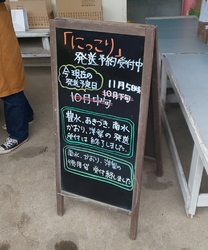 「にっこり」
発送予約受付中
今現在の
発送予定日
11月5日頃
10月下旬
10月中旬
豊水、あきづき、南水
かおり、洋梨の発送
受付は終了しました。
南水、かおり、洋梨の
受付終了しました